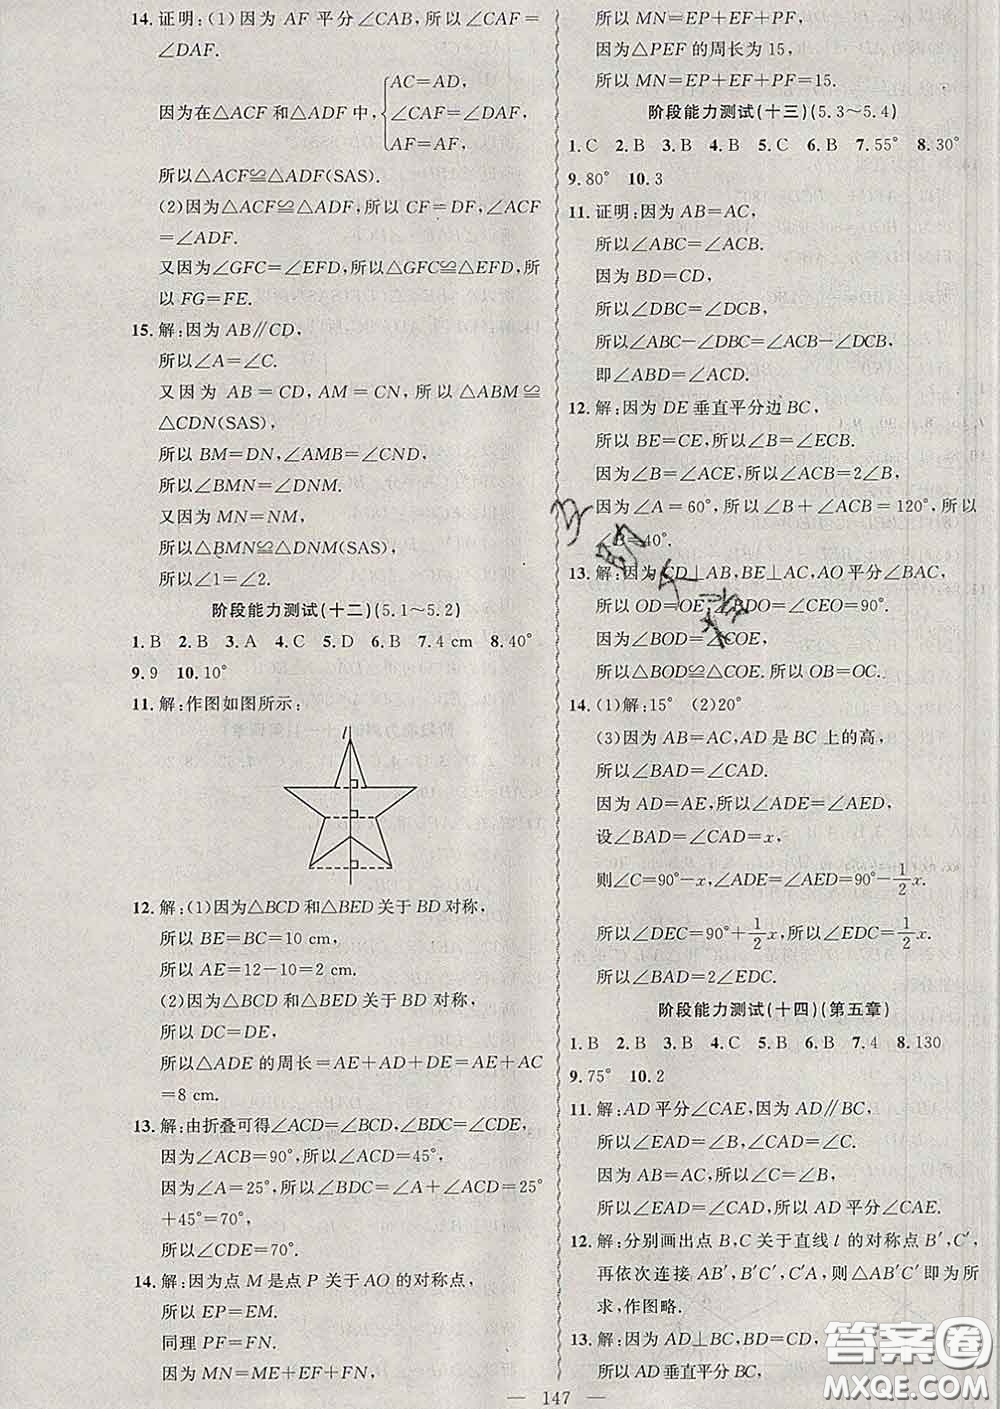 14.证明:(1)因为 AF 平分∠CAB,所以∠CAF=
∠DAF.
因为在△ACF 和△ADF 中,
AC=AD,
∠CAF=∠DAF,
AF=AF,
所以△ACF≌△ADF(SAS).
(2)因为△ACF≌△ADF,所以 CF=DF,∠ACF
=∠ADF.
又因为∠GFC=∠EFD,所以△GFC≌△EFD,所
以 FG=FE.
15.解:因为 AB∥CD,
所以∠A=∠C.
又因为 AB=CD,AM=CN,所以△ABM≌
△CDN(SAS).
所以 BM=DN,∠AMB=∠CND.
所以∠BMN=∠DNM.
又因为 MN=NM,
所以△BMN≌△DNM(SAS).
所以∠1=∠2.
阶段能力测试(十二)(5.1~5.2)
1.B 2.B 3.A 4.C 5.D 6.B 7.4 cm 8.40°
9.9 10.10°
11.解:作图如图所示:
l
12.解:(1)因为△BCD 和△BED 关于 BD 对称,
所以 BE=BC=10 cm,
所以 AE=12-10=2 cm.
(2)因为△BCD 和△BED 关于 BD 对称,
所以 DC=DE,
所以△ADE 的周长=AE+AD+DE=AE+AC
=8 cm.
13.解:由折叠可得∠ACD=∠BCD,∠BDC=∠CDE,
因为∠ACB=90°,所以∠ACD=45°,
因为∠A=25°,所以∠BDC=∠A+∠ACD=25°
+45°=70°,
所以∠CDE=70°.
14.解:因为点 M 是点 P 关于 AO 的对称点,
所以 EP=EM.
同理 PF=FN.
因为 MN=ME+EF+FN,
所以 MN=EP+EF+PF.
因为△PEF 的周长为 15,
所以 MN=EP+EF+PF=15.
阶段能力测试(十三)(5.3~5.4)
1.C 2.B 3.B 4.B 5.C 6.B 7.55° 8.30°
9.80° 10.3
11.证明:因为 AB=AC,
所以∠ABC=∠ACB.
因为 BD=CD,
所以∠DBC=∠DCB,
所以∠ABC-∠DBC=∠ACB-∠DCB,
即∠ABD=∠ACD.
12.解:因为 DE 垂直平分边 BC,
所以 BE=CE,所以∠B=∠ECB.
因为∠B=∠ACE,所以∠ACB=2∠B,
因为∠A=60°,所以∠B+∠ACB=120°,所以
∠B=40°.
13.解:因为 CD⊥AB,BE⊥AC,AO 平分∠BAC,
所以 OD=OE,∠BDO=∠CEO=90°.
因为∠BOD=∠COE,
所以△BOD≌△COE. 所以 OB=OC.
14.(1)解:15° (2)20°
(3)因为 AB=AC,AD 是 BC 上的高,
所以∠BAD=∠CAD.
因为 AD=AE,所以∠ADE=∠AED,
设∠BAD=∠CAD=x,
则∠C=90°-x,∠ADE=∠AED=90°-1/2x.
所以∠DEC=90°+1/2x,所以∠EDC=1/2x.
所以∠BAD=2∠EDC.
阶段能力测试(十四)(第五章)
1.B 2.B 3.B 4.C 5.B 6.B 7.4 8.130
9.75° 10.2
11.解:AD 平分∠CAE,因为 AD∥BC,
所以∠EAD=∠B,∠CAD=∠C.
因为 AB=AC,所以∠C=∠B,
所以∠EAD=∠CAD,所以 AD 平分∠CAE.
12.解:分别画出点 B,C 关于直线 l 的对称点 B′,C′,
再依次连接 AB′,B′C′,C′A,则△AB′C′即为所
求,作图略.
13.解:因为 AD⊥BC,BD=CD,
所以 AD 垂直平分 BC,
— 147 —
答案圈
MXQE.COM